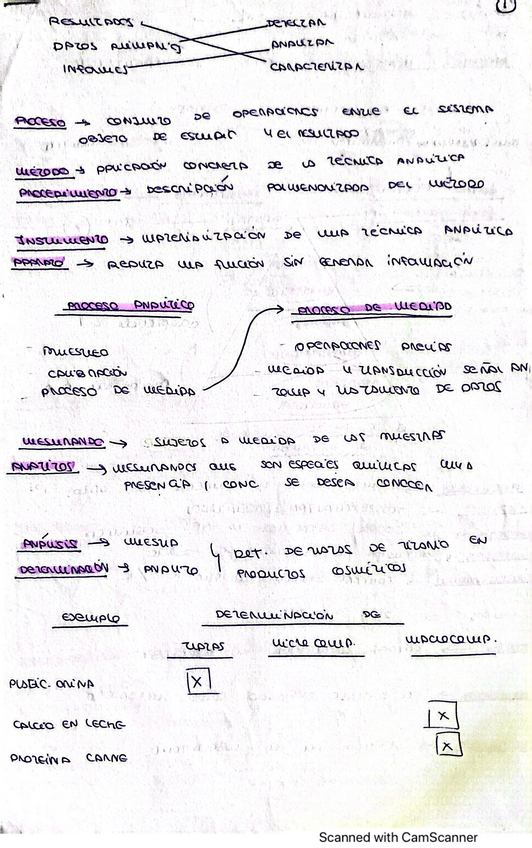 1
RESULTADOS DETECTAR
DATOS ANALIZAR
INFORMES CARACTERIZAR
PROCESO → CONJUNTO DE OPERACIONES ENTRE EL SISTEMA
OBJETO DE ESTUDIO Y EL RESULTADO
MÉTODO → APLICACIÓN CONCRETA DE LA TÉCNICA ANALÍTICA
PROCEDIMIENTO → DESCRIPCIÓN PORMENORIZADA DEL MÉTODO
INSTRUMENTO → MATERIALIZACIÓN DE UNA TÉCNICA ANALÍTICA
APARATO → REALIZA UNA FUNCIÓN SIN GENERAR INFORMACIÓN
PROCESO ANALÍTICO PROCESO DE MEDIDA
- MUESTREO - OPERACIONES PREVIAS
- CALIBRACIÓN - MEDIDA Y TRANSDUCCIÓN SEÑAL AN
- PROCESO DE MEDIDA - TOMA Y TRATAMIENTO DE DATOS
MESURANDO → SUJETOS A MEDIDA DE LAS MUESTRAS
ANALITOS → MESURANDOS QUE SON ESPECIES QUÍMICAS CUYA
PRESENCIA / CONC. SE DESEA CONOCER
ANÁLISIS → MUESTRA
DETERMINACIÓN → ANALITO
DET. DE TRAZAS DE TITANIO EN
PRODUCTOS COSMÉTICOS
EJEMPLO DETERMINACIÓN DE
TRAZAS MICROCOMP. MACROCOMP.
ORINA X
CALCIO EN LECHE X
PROTEÍNA CARNE X
Scanned with CamScanner